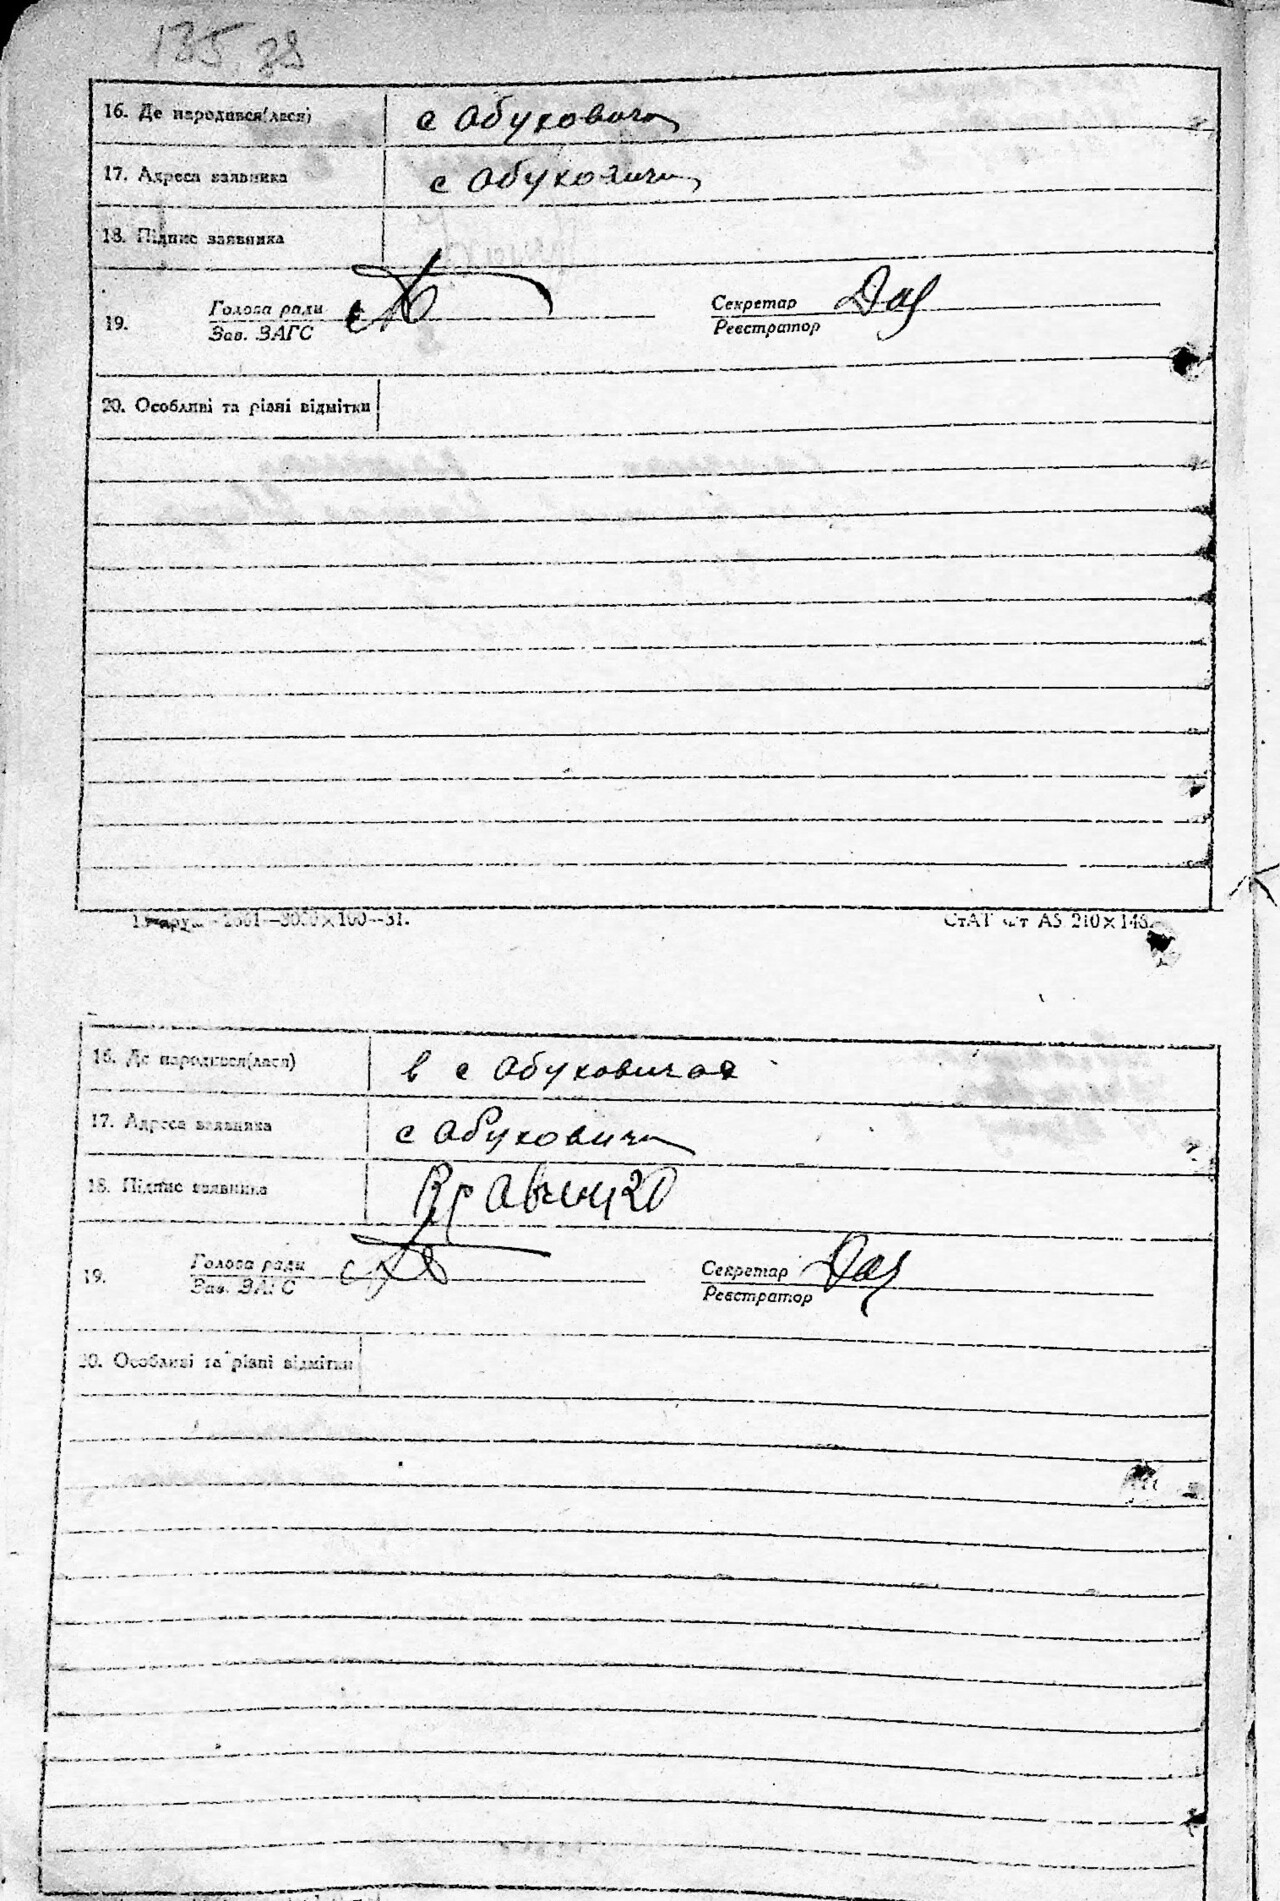 135, 38
16. Де народився(лася) с Обуховичи
17. Адреса заявника с Обуховичи
18. Підпис заявника
19. Голова ради Секретар
Зав. ЗАГС Реєстратор
20. Особливі та різні відмітки
СтАТ Фт А5 210×148.
16. Де народився(лася) в с Обуховичах
17. Адреса заявника с Обуховичи
18. Підпис заявника
19. Голова ради Секретар
Зав. ЗАГС Реєстратор
20. Особливі та різні відмітки